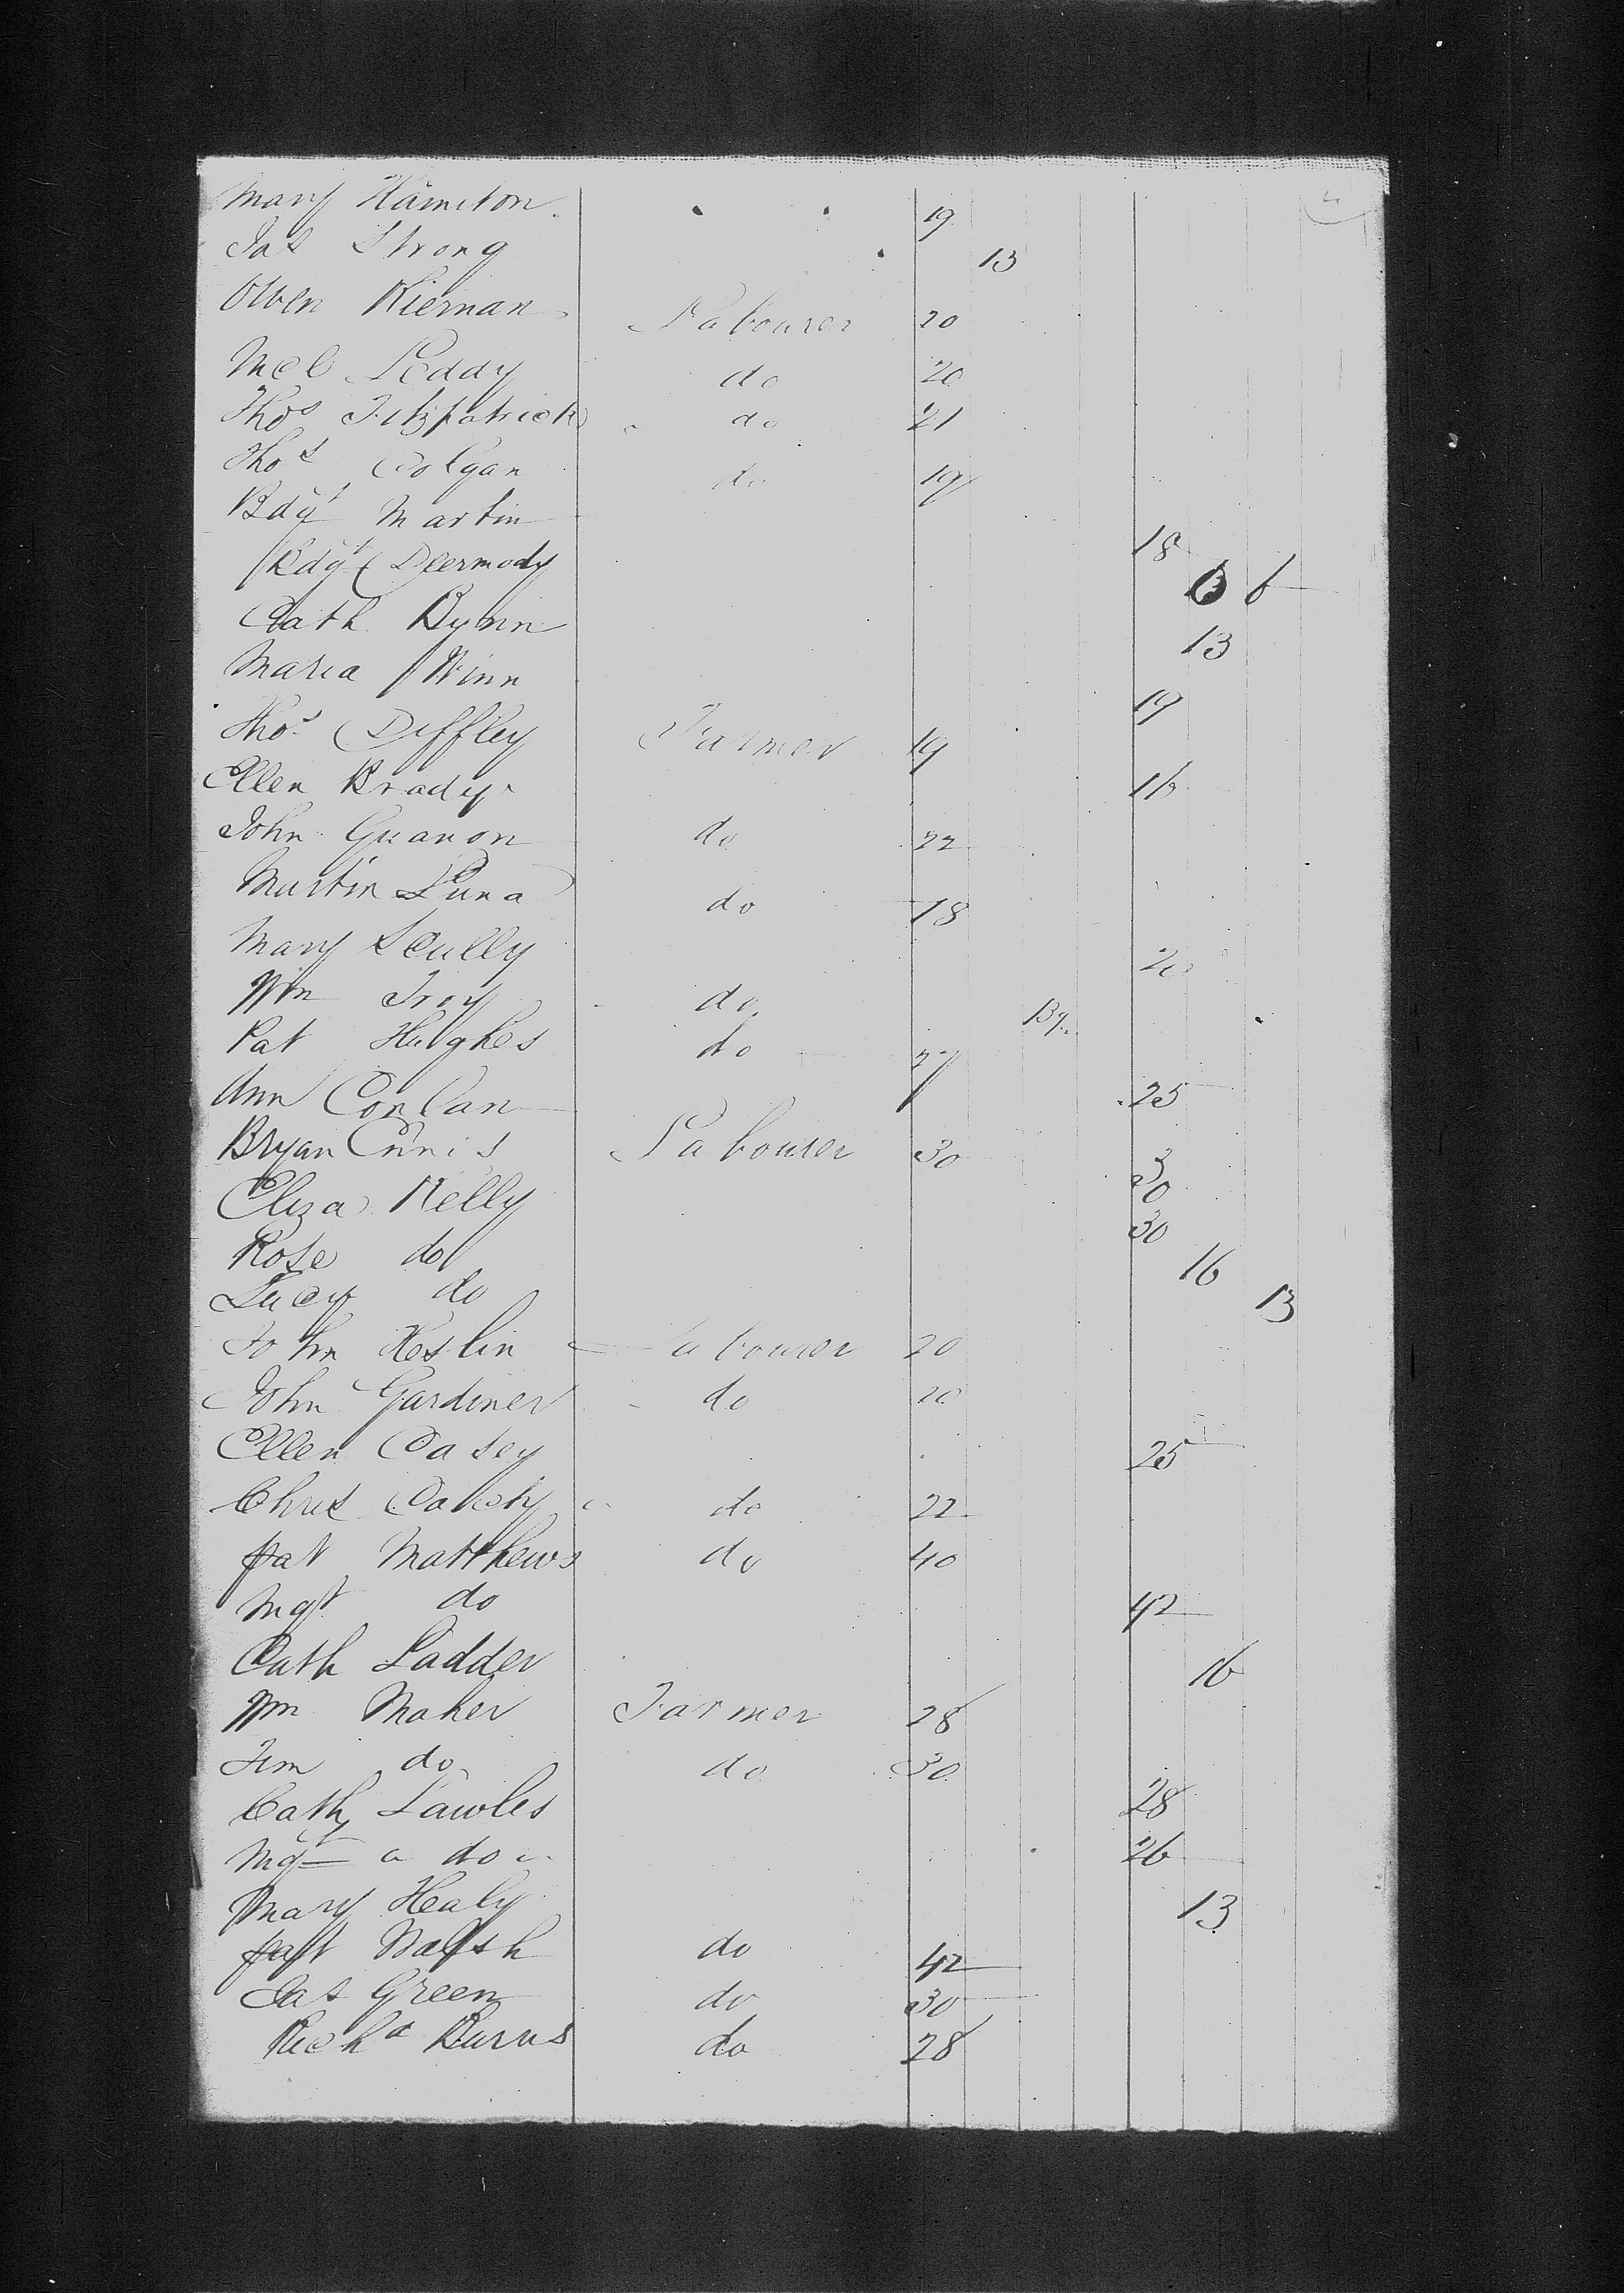 Mary Hamilton 19
Jas Strong 13
Owen Kiernan Labourer 20
Mcl Leddy do 20
Thos Fitzpatrick do 21
Thos Colgan do 19
Bdgt Martin 18
Bdgt Deermody 6
Cath Bynn 13
Maria Winn 19
Thos Diffley Farmer 19
Ellen Brady 16
John Guanon do 22
Martin Luna do 18
Mary Scully 20
Wm Troy do 13
Pat Hughes do 27
Ann Conlan 25
Bryan Ennis Labourer 30 30
Eliza Kelly 30
Rose do 16
Lucy do 13
John Heslin Labourer 20
John Gardiner do 20
Ellen Casey 25
Chris do 22
Pat Matthews do 40
Mgt do 42
Cath Ladder 16
Wm Maher Farmer 28
Jim do do 30
Cath Lawles 28
Mgt do 26
Mary Healy 13
Pat Walsh do 42
Jas Green do 30
Richd Burns do 28